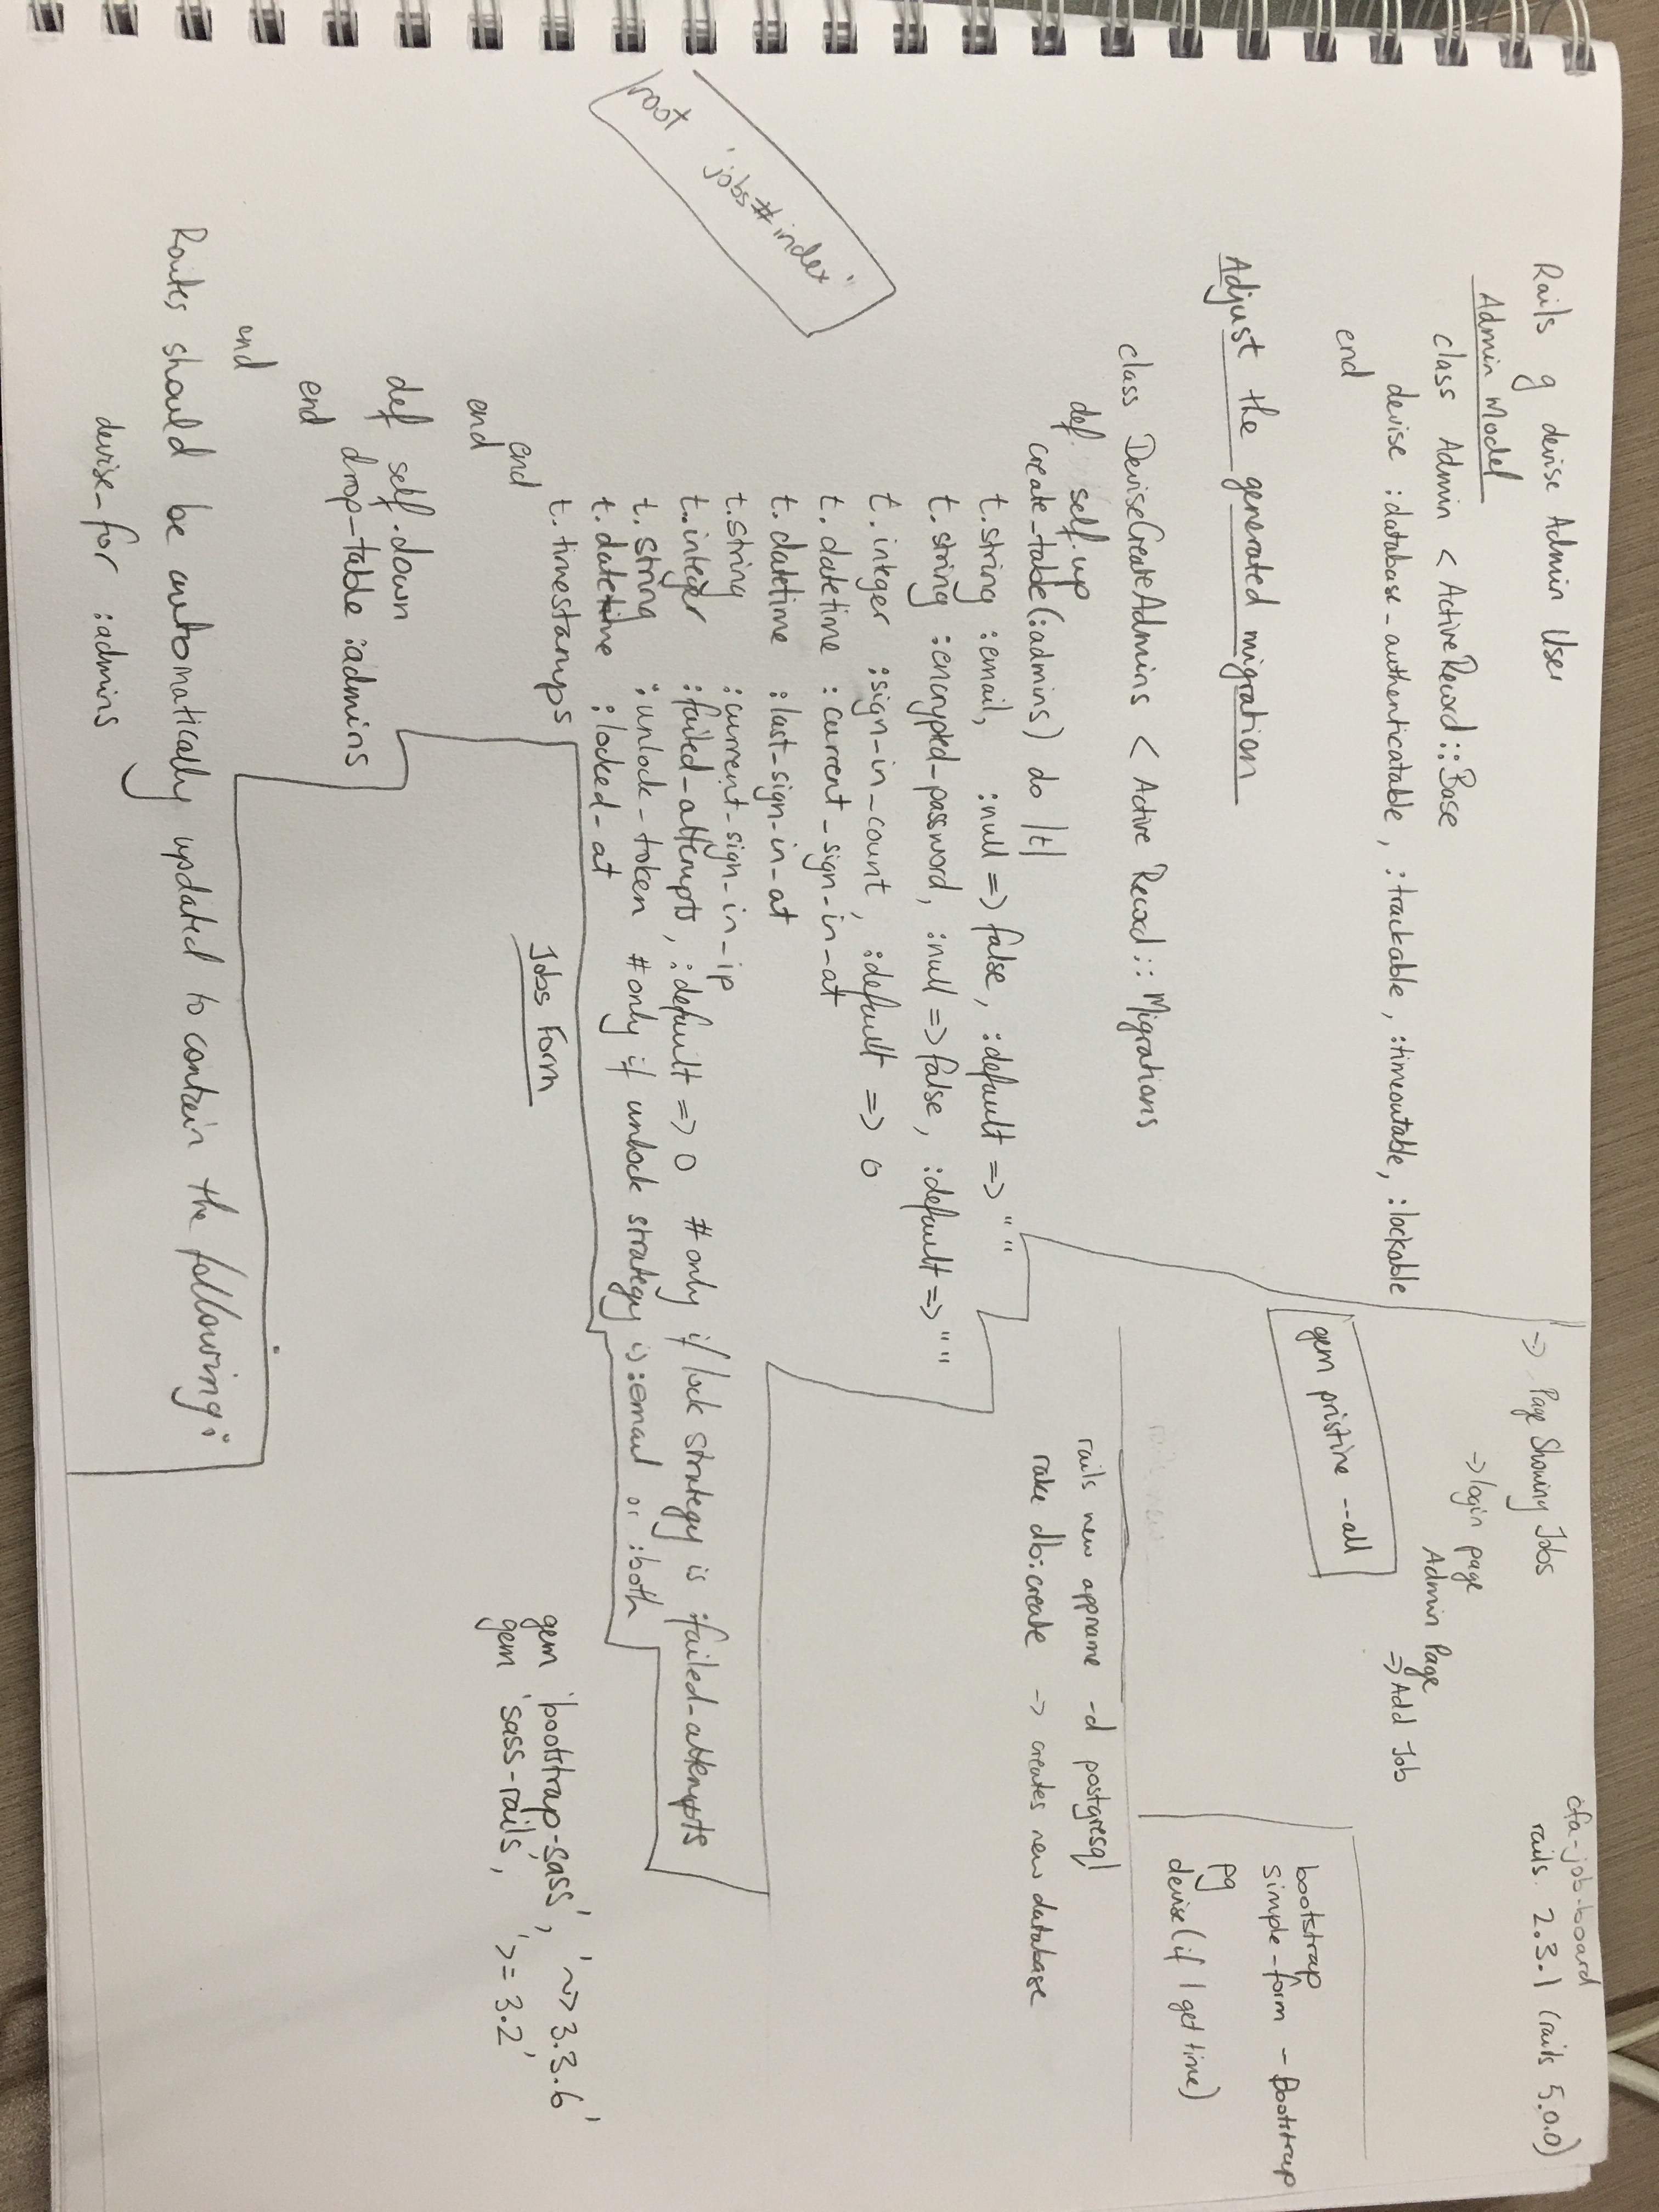 Rails g devise Admin User
Admin Model
class Admin < ActiveRecord::Base
devise :database_authenticatable, :trackable, :timeoutable, :lockable
end
Adjust the generated migration
class DeviseCreateAdmins < Active Record::Migrations
def. self.up
create_table(:admins) do |t|
t.string :email, :null => false, :default => ""
t.string :encrypted_password, :null => false, :default => ""
t.integer :sign_in_count, :default => 0
t.datetime :current_sign_in_at
t.datetime :last_sign_in_at
t.string :current_sign_in_ip
t.integer :failed_attempts, :default => 0 #only if lock strategy is :failed_attempts
t.string :unlock_token #only if unlock strategy is :email or :both
t.datetime :locked_at
t.timestamps
end
end
def self.down
drop_table :admins
end
end
Routes should be automatically updated to contain the following:
devise_for :admins
root 'jobs#index'
Jobs Form
=> Page Showing Jobs
=> login page
Admin Page
=> Add Job
gem pristine --all
cfa-job-board
rails. 2.3.1 (rails 5.0.0)
bootstrap
simple_form - bootstrap
pg
devise (if I get time)
rails new appname -d postgresql
rake db:create -> creates new database
gem 'bootstrap-sass', '~> 3.3.6'
gem 'sass-rails', '>= 3.2'